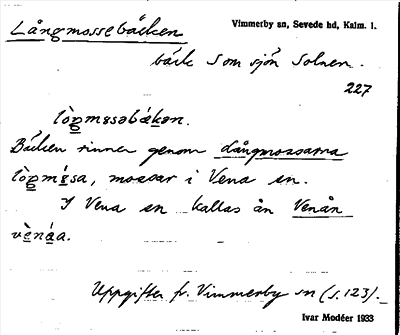 Långmossebäcken
Vimmerby sn, Sevede hd, Kalm. l.
bäck som sjön Solnen.
227
lòŋmɷsəbǽkən.
Bäcken rinner genom Långmossarna
lòŋmɷ́sa, mossar i Vena sn.
I Vena sn kallas ån Venån
vènáa.
Uppgifter fr. Vimmerby sn (s. 123).
Ivar Modéer 1933